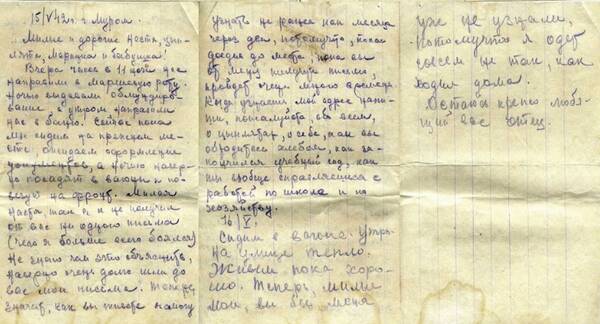 15/V 42 г. г. Муром.
Милые и дорогие Настя, цып-
лята, Маруська и бабушка!
Вчера часов в 11 ночи нас
направили в маршевую роту.
Ночью выдавали обмундиро-
вание а утром направили
нас в баню. Сейчас пока
мы сидим на прежнем ме-
сте, ожидаем оформления
документов, а ночью навер-
но посадят в вагоны и по-
везут на фронт. Милая
Настя, так я и не получил
от вас ни одного письма
(чего я больше всего боялся)
Не знаю чем это объяснить,
наверно очень долго шли до
вас мои письма. Теперь,
значит, как вы живете я могу
узнать не ранее как месяца
через два, потому что, пока
доедем до места, пока вы
от меня получите письмо,
пройдет очень много времени.
Когда узнаете мой адрес напи-
ши, пожалуйста, обо всем,
о цыплятах, о себе, как вы
обходитесь с хлебом, как за-
кончился учебный год, как
ты вообще справляешься с
работой по школе и по
хозяйству.
16/V.
Сидим в вагонах. Утро.
На улице тепло.
Живем пока хоро-
шо. Теперь, милые
мои, вы бы меня
уже не узнали,
потому что я одет
совсем не так, как
ходил дома.
Остаюсь крепко любя-
щий вас отец.